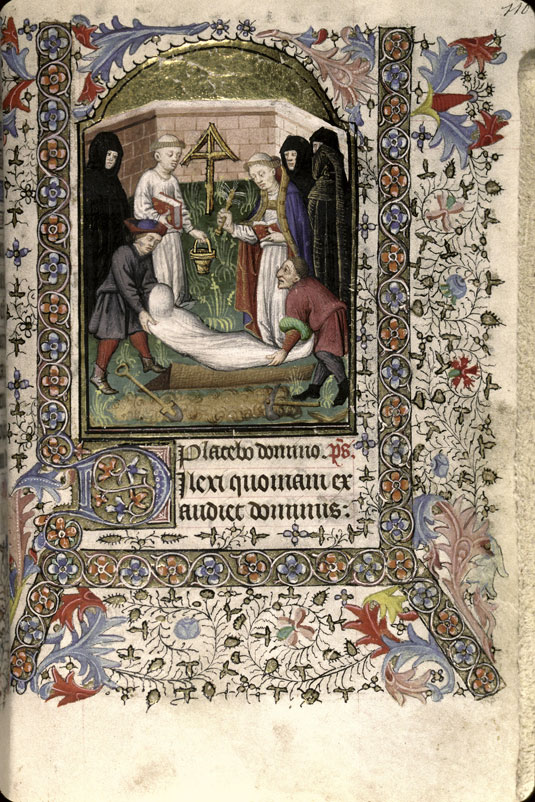 110
Placebo domino. ps̄.
Dilexi quoniam ex
audiet dominus: